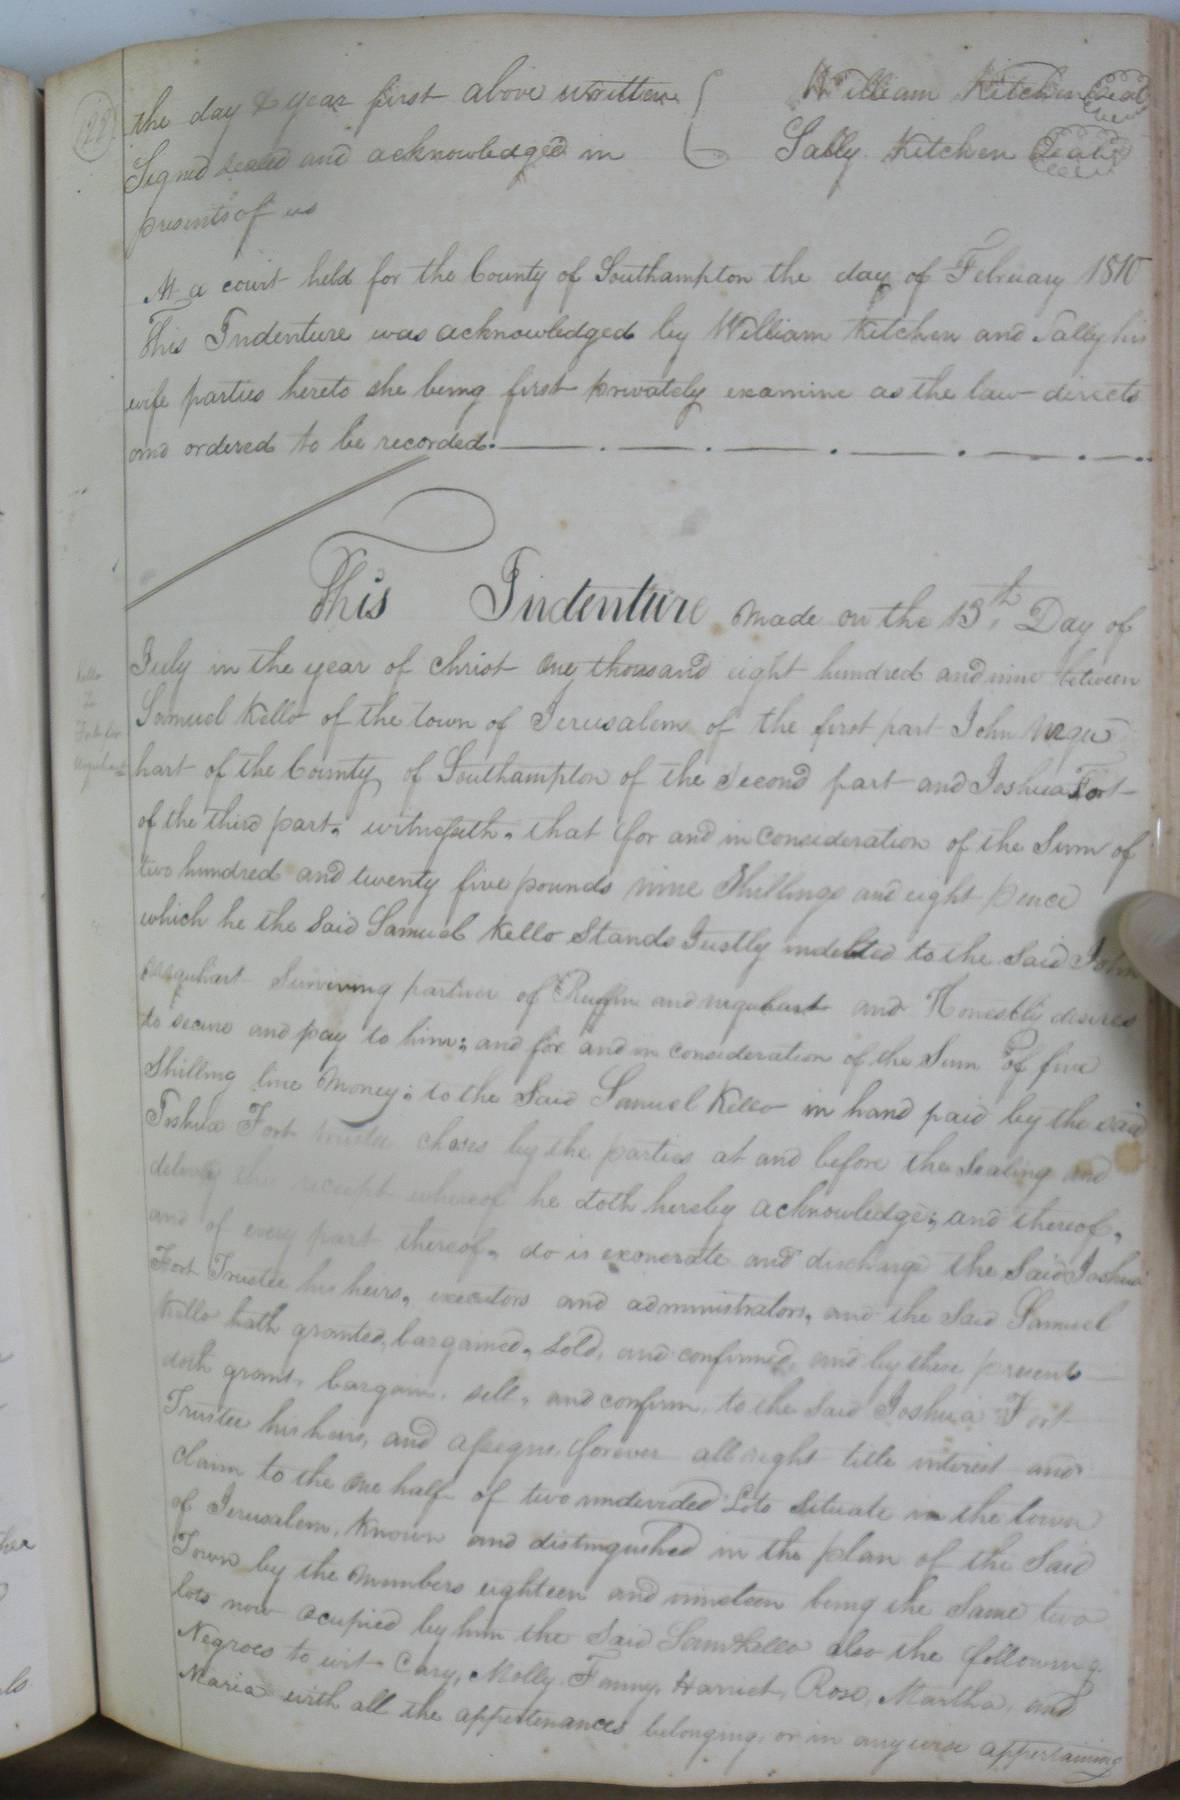 122
the day & year first above written William Kitchen Seal
Signed sealed and acknowledged in Sally Kitchen Seal
presents of us
At a court held for the County of Southampton the day of February 1810
This Indenture was acknowledged by William Kitchen and Sally his
wife parties hereto she being first privately examine as the law directs
and ordered to be recorded.
This Indenture made on the 13th Day of
July in the year of Christ One thousand eight hundred and nine between
Kello
To
Samuel Kello of the town of Jerusalem of the first part John Urqu
hart of the County of Southampton of the second part and Joshua Fort
of the third part. witnesseth. that for and in consideration of the Sum of
two hundred and twenty five pounds nine Shillings and eight pence
which he the Said Samuel Kello Stands Justly indebted to the Said John
Urquhart Surviving partner of Ruffin and urquhart and Honestly desires
to secure and pay to him; and for and in consideration of the Sum of five
Shilling Money; to the Said Samuel Kello in hand paid by the said
Joshua Fort trustee choses by the parties at and before the Sealing and
delivery the receipt whereof he doth hereby acknowledge; and thereof,
and of every part thereof, do is exonerate and discharge the Said Joshua
Fort Trustee his heirs, executors and administrators, and the Said Samuel
Kello hath granted, bargained, Sold, and confirmed, and by these presents
doth grant, bargain, sell, and confirm, to the Said Joshua Fort
Trustee his heirs, and assigns, forever all right title interest and
claim to the One half of two undevided Lots Situate in the town
of Jerusalem, Known and distinguished in the plan of the Said
Town by the Numbers eighteen and nineteen being the Same two
lots now ocupied by him the Said Saml Kello also the following
Negroes to wit Cary, Molly, Fanny, Harriet, Rose, Martha, and
Maria with all the appertenances belonging, or in any wise appertaining